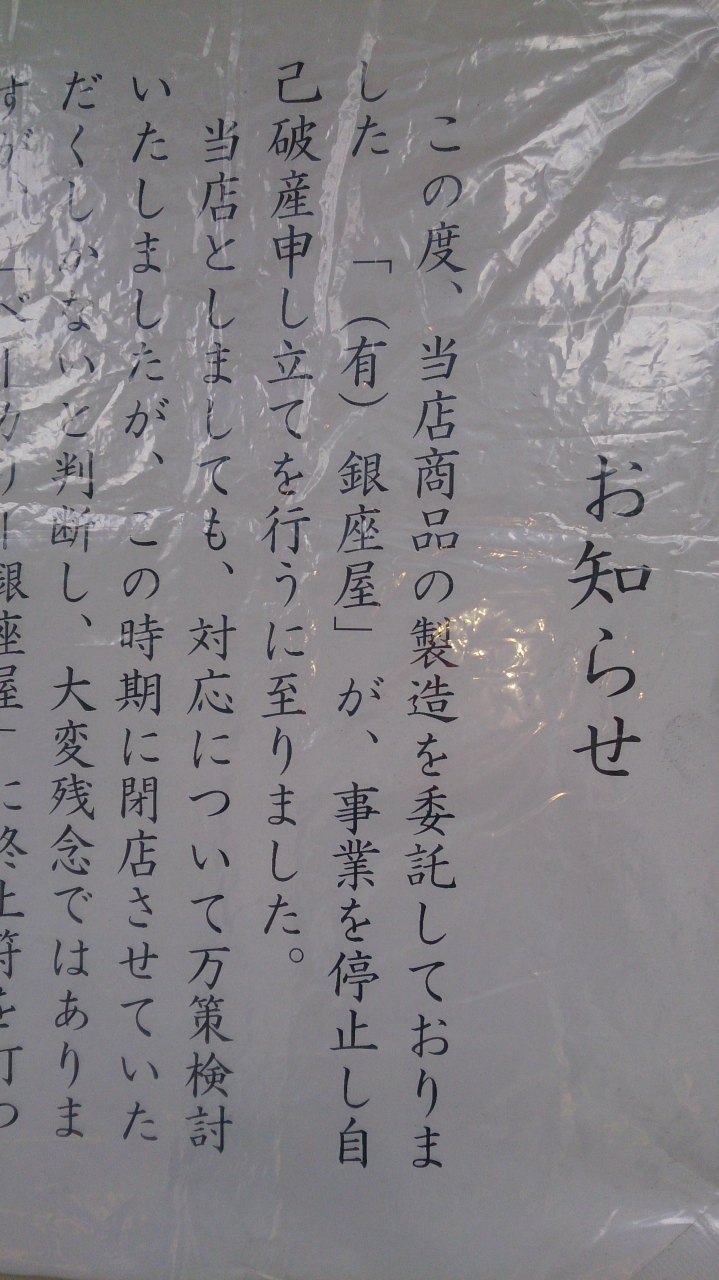 お知らせ
この度、当店商品の製造を委託しておりま
した「(有)銀座屋」が、事業を停止し自
己破産申し立てを行うに至りました。
当店としましても、対応について万策検討
いたしましたが、この時期に閉店させていた
だくしかないと判断し、大変残念ではありま
すが、「ベーカリー銀座屋」に終止符を打つ